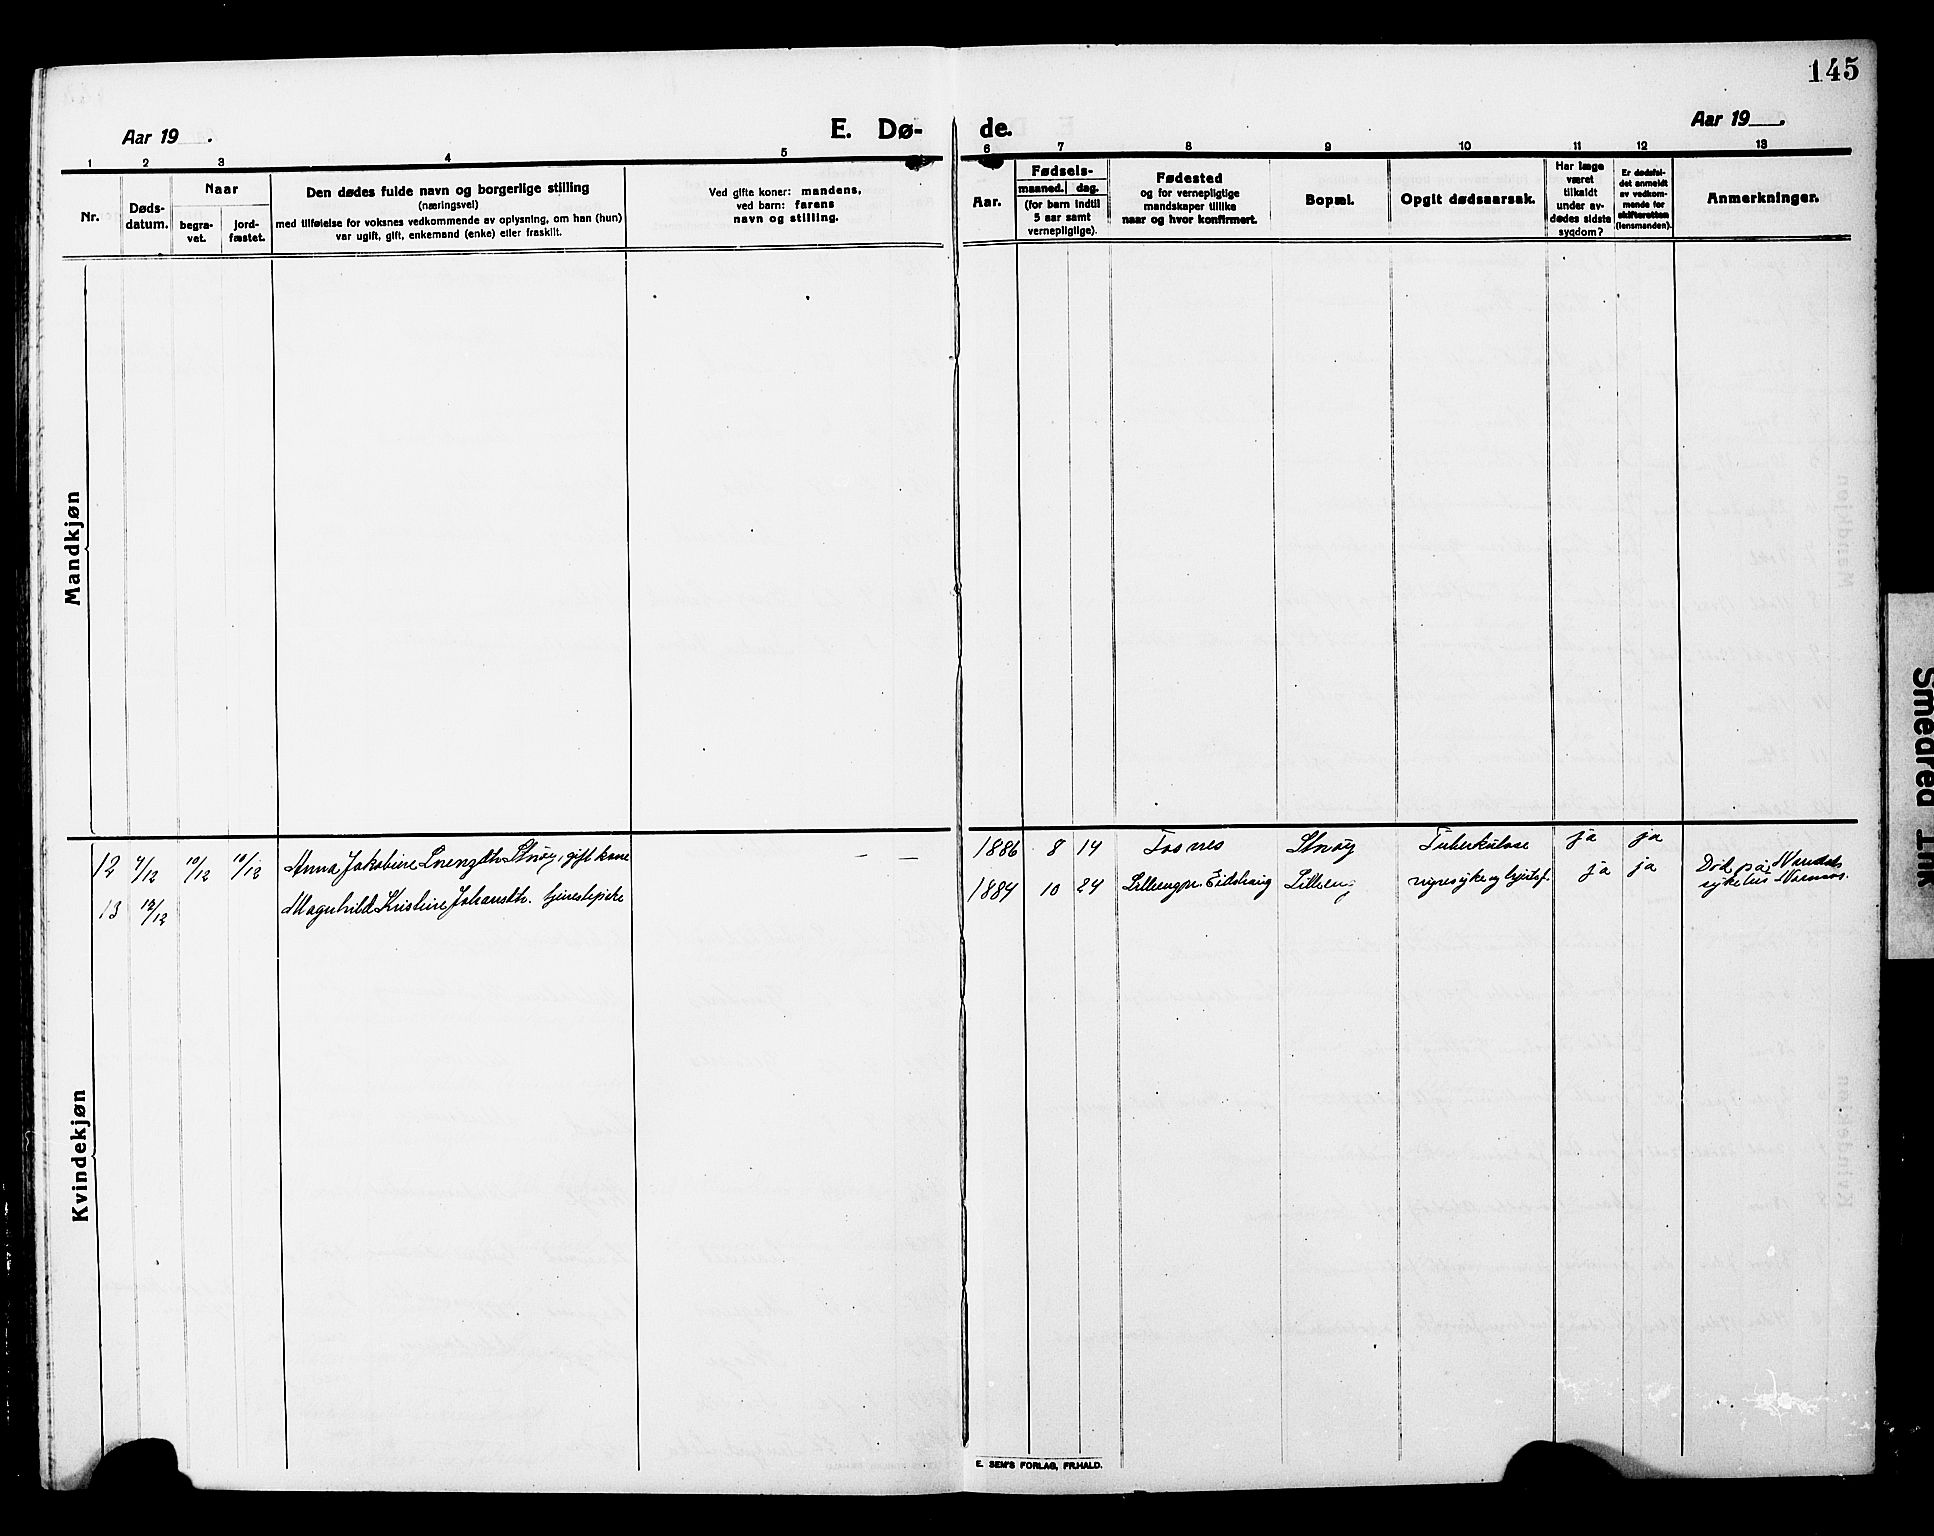 145
Aar 19 .
E. Dø- de.
Aar 19 .
1 2 3 4 5 6 7 8 9 10 11 12 13
Nr.
Døds-
datum.
Naar
begra-
vet.
jord-
fæstet.
Den dødes fulde navn og borgerlige stilling
(næringsvei)
med tilføielse for voksnes vedkommende av oplysning, om han (hun)
var ugift, gift, enkemand (enke) eller fraskilt.
Ved gifte koner: mandens,
ved barn: farens
navn og stilling.
Aar.
Fødsels-
maaned. dag.
(for barn indtil
5 aar samt
vernepligtige).
Fødested
og for vernepligtige
mandskaper tillike
naar og hvor konfirmert.
Bopæl.
Opgit dødsaarsak.
Har læge
været
tilkaldt
under av-
dødes sidste
sygdom?
Er dødsfal-
det anmeldt
av vedkom-
mende for
skifteretten
(lensmanden).
Anmerkninger.
Mandkjøn
Kvindekjøn
12 4/12 10/12 10/12 Anna Jakobine gift kone — — 1886 8 14 Fosnes Tuberkulose ja ja
13 12/12 Magnhild Kristine Johansdtr. tjenestepike 1884 10 24 nyresyke og ja ja Død på
sykehus
E. SEM'S FORLAG, FR.HALD.
Smedred Ink